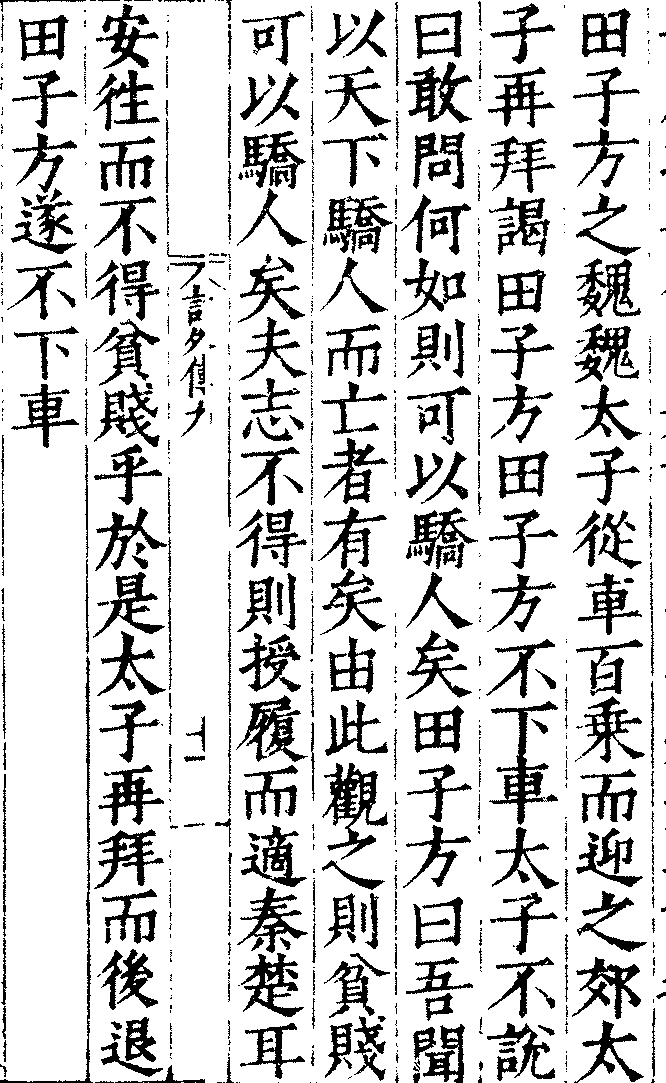 田子方之魏魏太子從車百乗而迎之郊太
子再拜謁田子方田子方不下車太子不說
曰敢問何如則可以驕人矣田子方曰吾聞
以天下驕人而亡者有矣由此觀之則貧賤
可以驕人矣夫志不得則授履而適秦楚耳
安徃而不得貧賤乎於是太子再拜而後退
田子方遂不下車